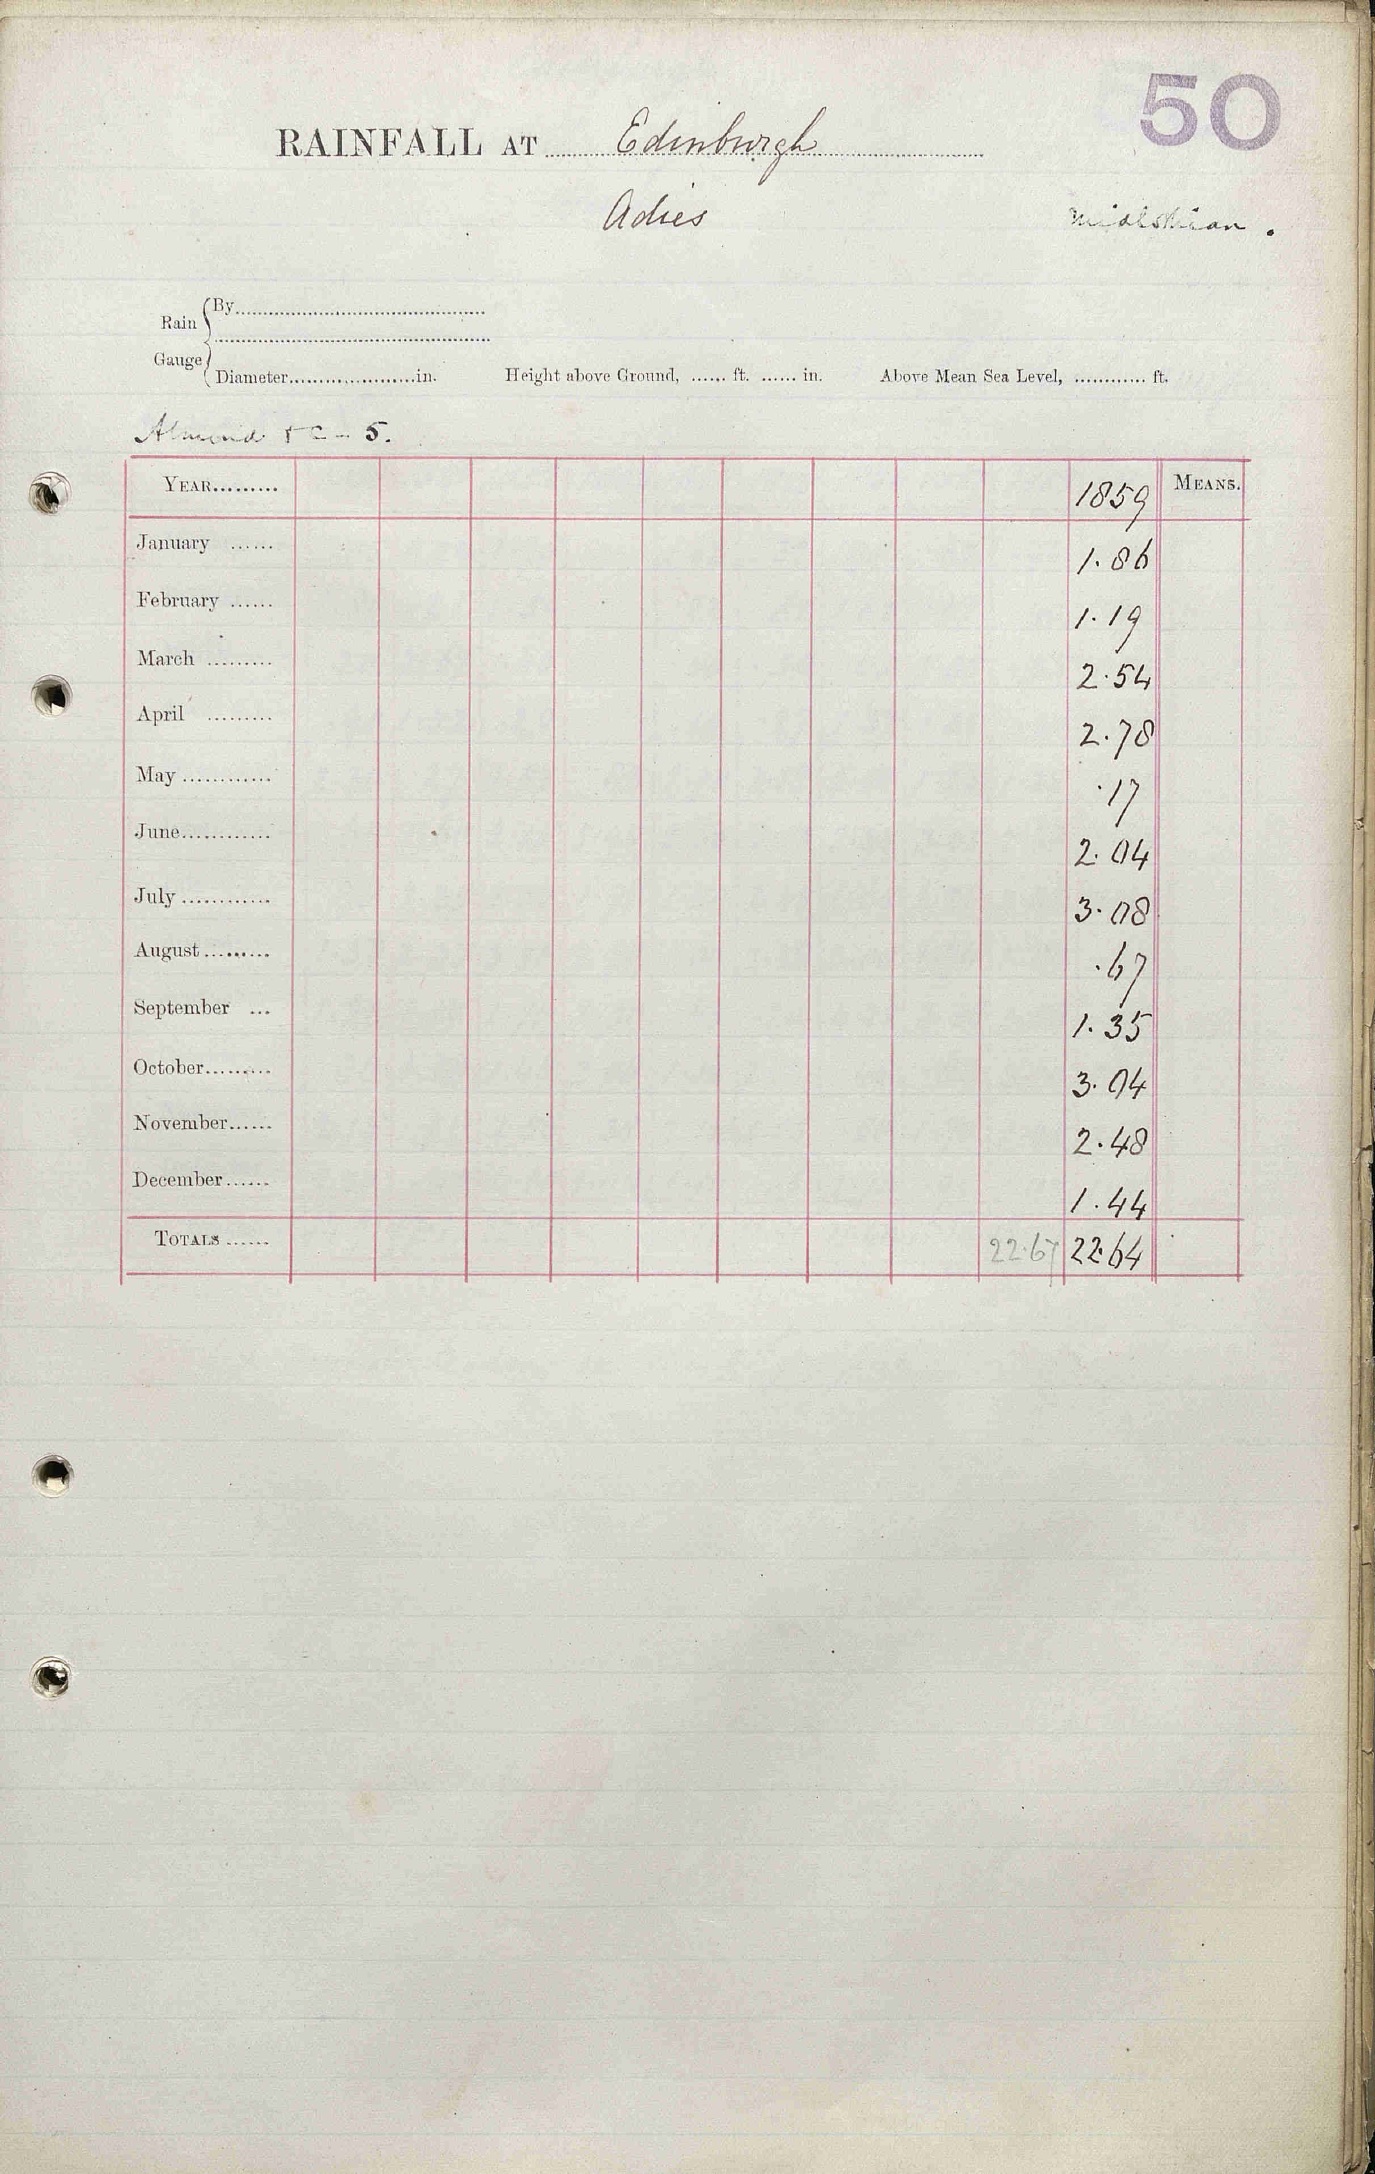 50
RAINFALL AT Edinburgh
Adies
Midlothian.
Rain Gauge
By
Diameter in. Height above Ground, ft. in. Above Mean Sea Level, ft.
Almond &c - 5.
YEAR 1859 MEANS.
January 1.86
February 1.19
March 2.54
April 2.78
May .17
June 2.04
July 3.08
August .67
September 1.35
October 3.04
November 2.48
December 1.44
TOTALS 22.67 22.64